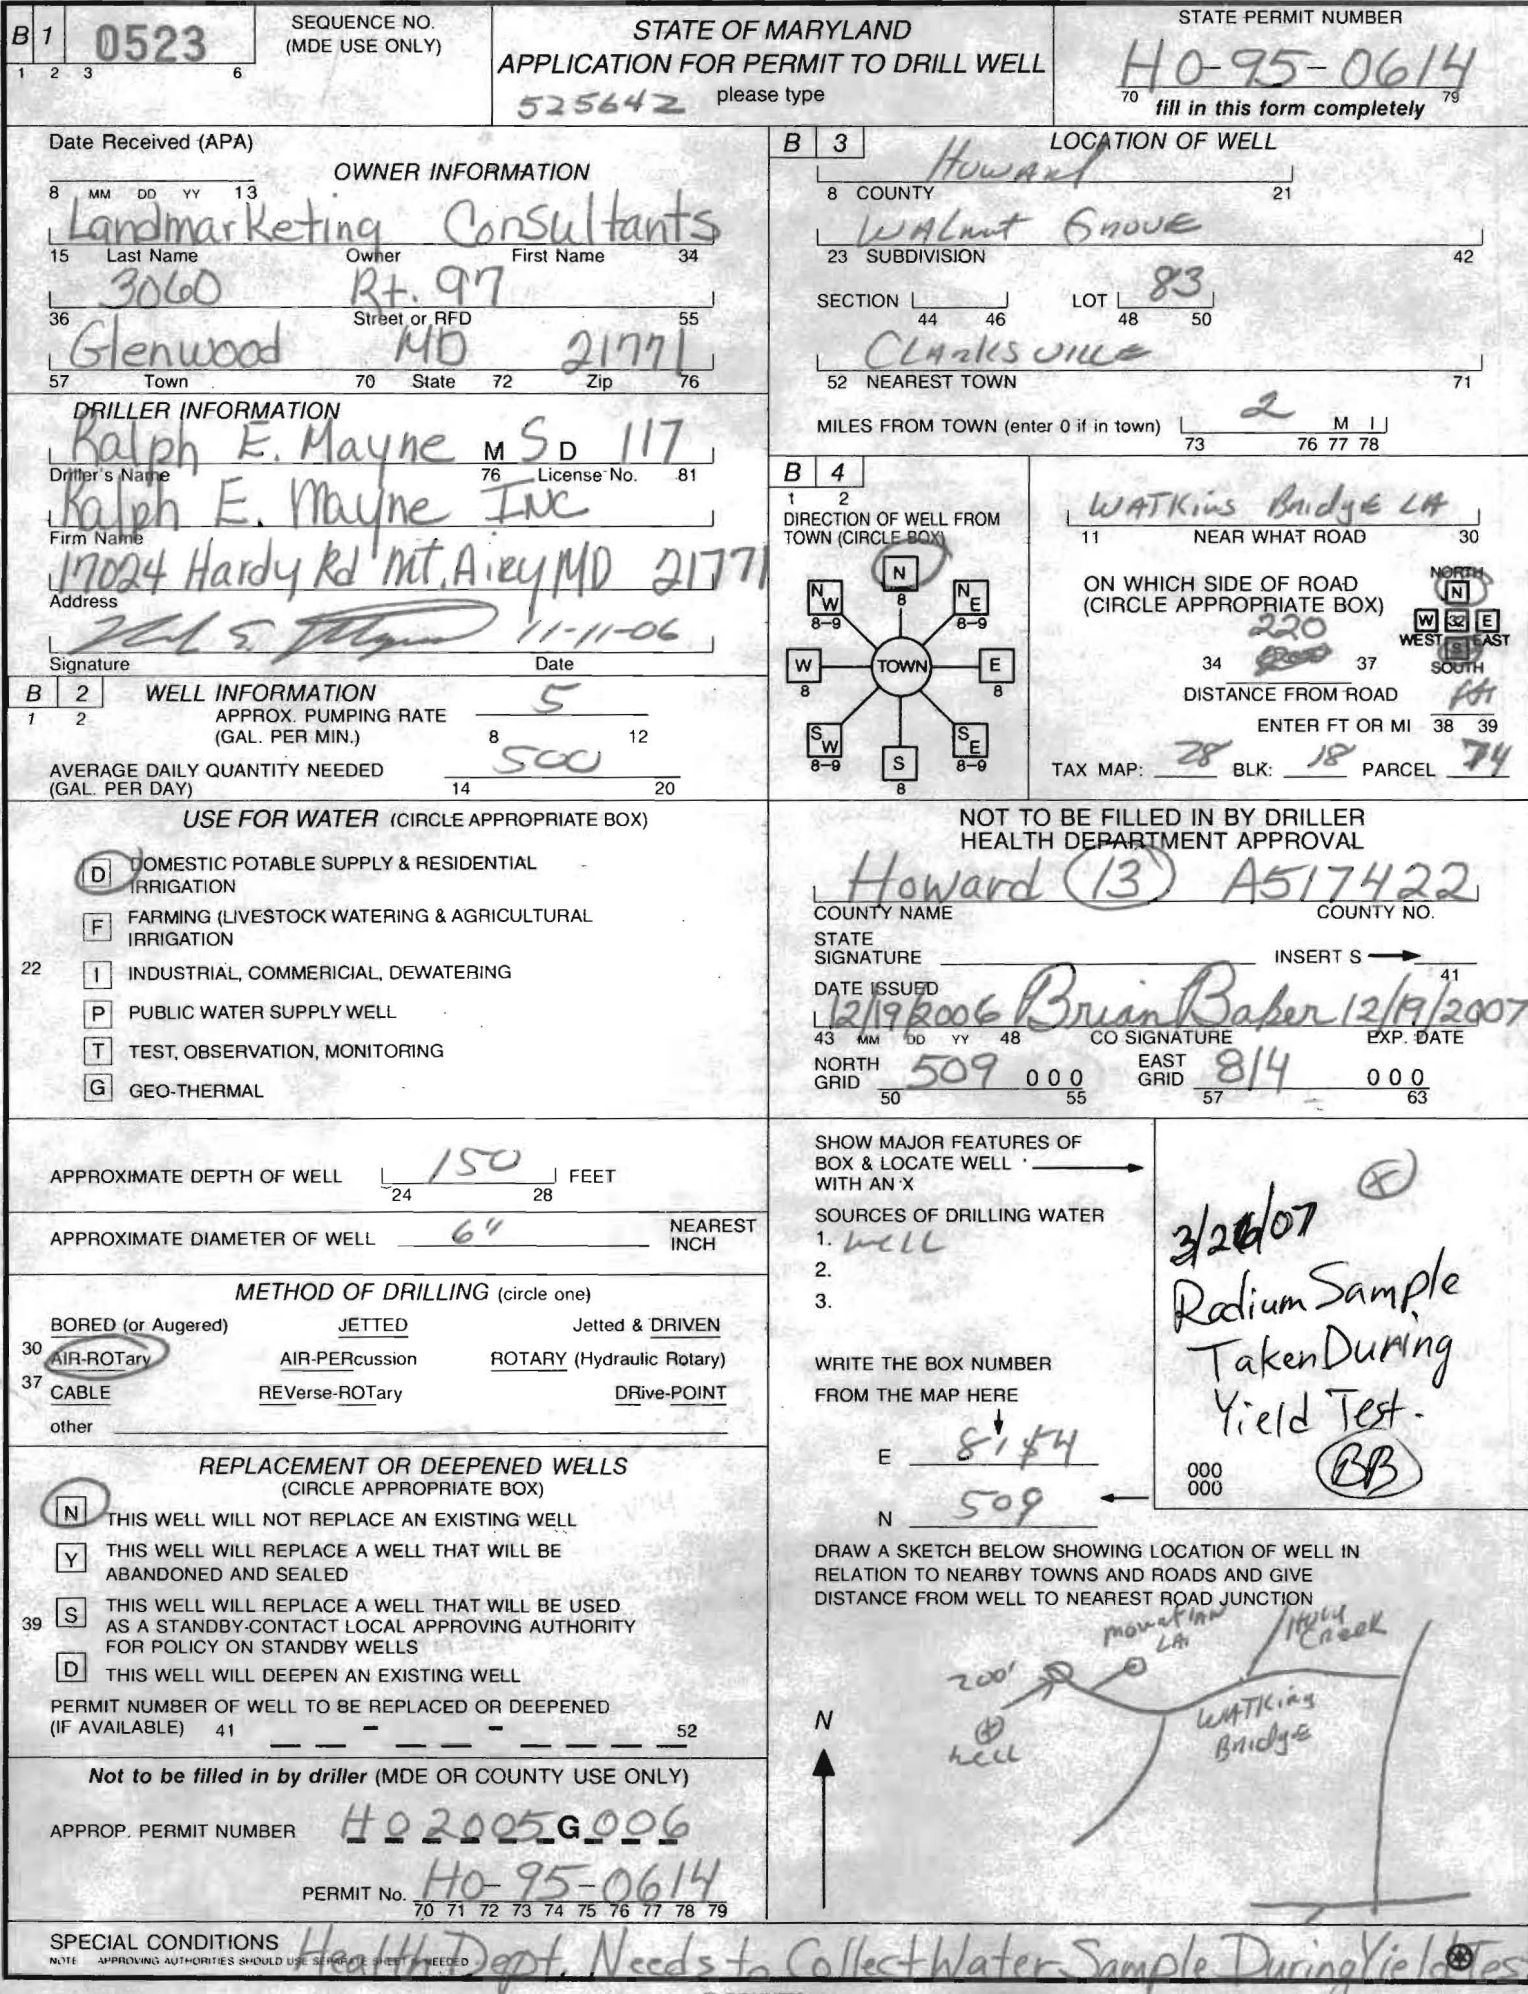 B 1 0523
1 2 3 6
SEQUENCE NO.
(MDE USE ONLY)
STATE OF MARYLAND
APPLICATION FOR PERMIT TO DRILL WELL
525642 please type
STATE PERMIT NUMBER
HO-95-0614
70 79
fill in this form completely
Date Received (APA)
8 MM DD YY 13
OWNER INFORMATION
Landmarketing Consultants
15 Last Name Owner First Name 34
3060 Rt. 97
36 Street or RFD 55
Glenwood MD 21771
57 Town 70 State 72 Zip 76
DRILLER INFORMATION
Ralph E. Mayne M S D 117
Driller's Name 76 License No. 81
Ralph E. Mayne INC
Firm Name
17024 Hardy Rd Mt. Airy MD 21771
Address
11-11-06
Signature Date
B 2 WELL INFORMATION
1 2
APPROX. PUMPING RATE 5
(GAL. PER MIN.) 8 12
AVERAGE DAILY QUANTITY NEEDED 500
(GAL. PER DAY) 14 20
USE FOR WATER (CIRCLE APPROPRIATE BOX)
D DOMESTIC POTABLE SUPPLY & RESIDENTIAL
IRRIGATION
F FARMING (LIVESTOCK WATERING & AGRICULTURAL
IRRIGATION
22 I INDUSTRIAL, COMMERICIAL, DEWATERING
P PUBLIC WATER SUPPLY WELL
T TEST, OBSERVATION, MONITORING
G GEO-THERMAL
APPROXIMATE DEPTH OF WELL 150 FEET
24 28
APPROXIMATE DIAMETER OF WELL 6" NEAREST
INCH
METHOD OF DRILLING (circle one)
BORED (or Augered) JETTED Jetted & DRIVEN
30 AIR-ROTary AIR-PERcussion ROTARY (Hydraulic Rotary)
37 CABLE REVerse-ROTary DRive-POINT
other
REPLACEMENT OR DEEPENED WELLS
(CIRCLE APPROPRIATE BOX)
N THIS WELL WILL NOT REPLACE AN EXISTING WELL
Y THIS WELL WILL REPLACE A WELL THAT WILL BE
ABANDONED AND SEALED
39 S THIS WELL WILL REPLACE A WELL THAT WILL BE USED
AS A STANDBY-CONTACT LOCAL APPROVING AUTHORITY
FOR POLICY ON STANDBY WELLS
D THIS WELL WILL DEEPEN AN EXISTING WELL
PERMIT NUMBER OF WELL TO BE REPLACED OR DEEPENED
(IF AVAILABLE) 41 - - 52
Not to be filled in by driller (MDE OR COUNTY USE ONLY)
APPROP. PERMIT NUMBER HO2005G006
PERMIT No. HO-95-0614
70 71 72 73 74 75 76 77 78 79
B 3 LOCATION OF WELL
Howard
8 COUNTY 21
Walnut Grove
23 SUBDIVISION 42
SECTION LOT 83
44 46 48 50
Clarksville
52 NEAREST TOWN 71
MILES FROM TOWN (enter 0 if in town) 2 M I
73 76 77 78
B 4
1 2
DIRECTION OF WELL FROM
TOWN (CIRCLE BOX)
N
8
NW NE
8-9 8-9
W TOWN E
8 8
SW SE
8-9 8-9
S
8
Watkins Bridge LA
11 NEAR WHAT ROAD 30
ON WHICH SIDE OF ROAD
(CIRCLE APPROPRIATE BOX)
NORTH
N
W 32 E
WEST S EAST
SOUTH
220
34 37
DISTANCE FROM ROAD
ENTER FT OR MI 38 39
TAX MAP: 28 BLK: 18 PARCEL 74
NOT TO BE FILLED IN BY DRILLER
HEALTH DEPARTMENT APPROVAL
Howard 13 A517422
COUNTY NAME COUNTY NO.
STATE
SIGNATURE INSERT S
41
DATE ISSUED
12/19/2006 Brian Baker 12/19/2007
43 MM DD YY 48 CO SIGNATURE EXP. DATE
NORTH GRID 509 000 EAST GRID 814 000
50 55 57 63
SHOW MAJOR FEATURES OF
BOX & LOCATE WELL
WITH AN X
SOURCES OF DRILLING WATER
1. well
2.
3.
WRITE THE BOX NUMBER
FROM THE MAP HERE
E 814
N 509
X
3/26/07
Radium Sample
Taken During
Yield Test.
BB
000
000
DRAW A SKETCH BELOW SHOWING LOCATION OF WELL IN
RELATION TO NEARBY TOWNS AND ROADS AND GIVE
DISTANCE FROM WELL TO NEAREST ROAD JUNCTION
LA.
Creek
200'
Watkins
Bridge
well
N
SPECIAL CONDITIONS Health Dept. Needs to Collect Water Sample During Yield Test
NOTE APPROVING AUTHORITIES SHOULD USE SEPARATE SHEET IF NEEDED